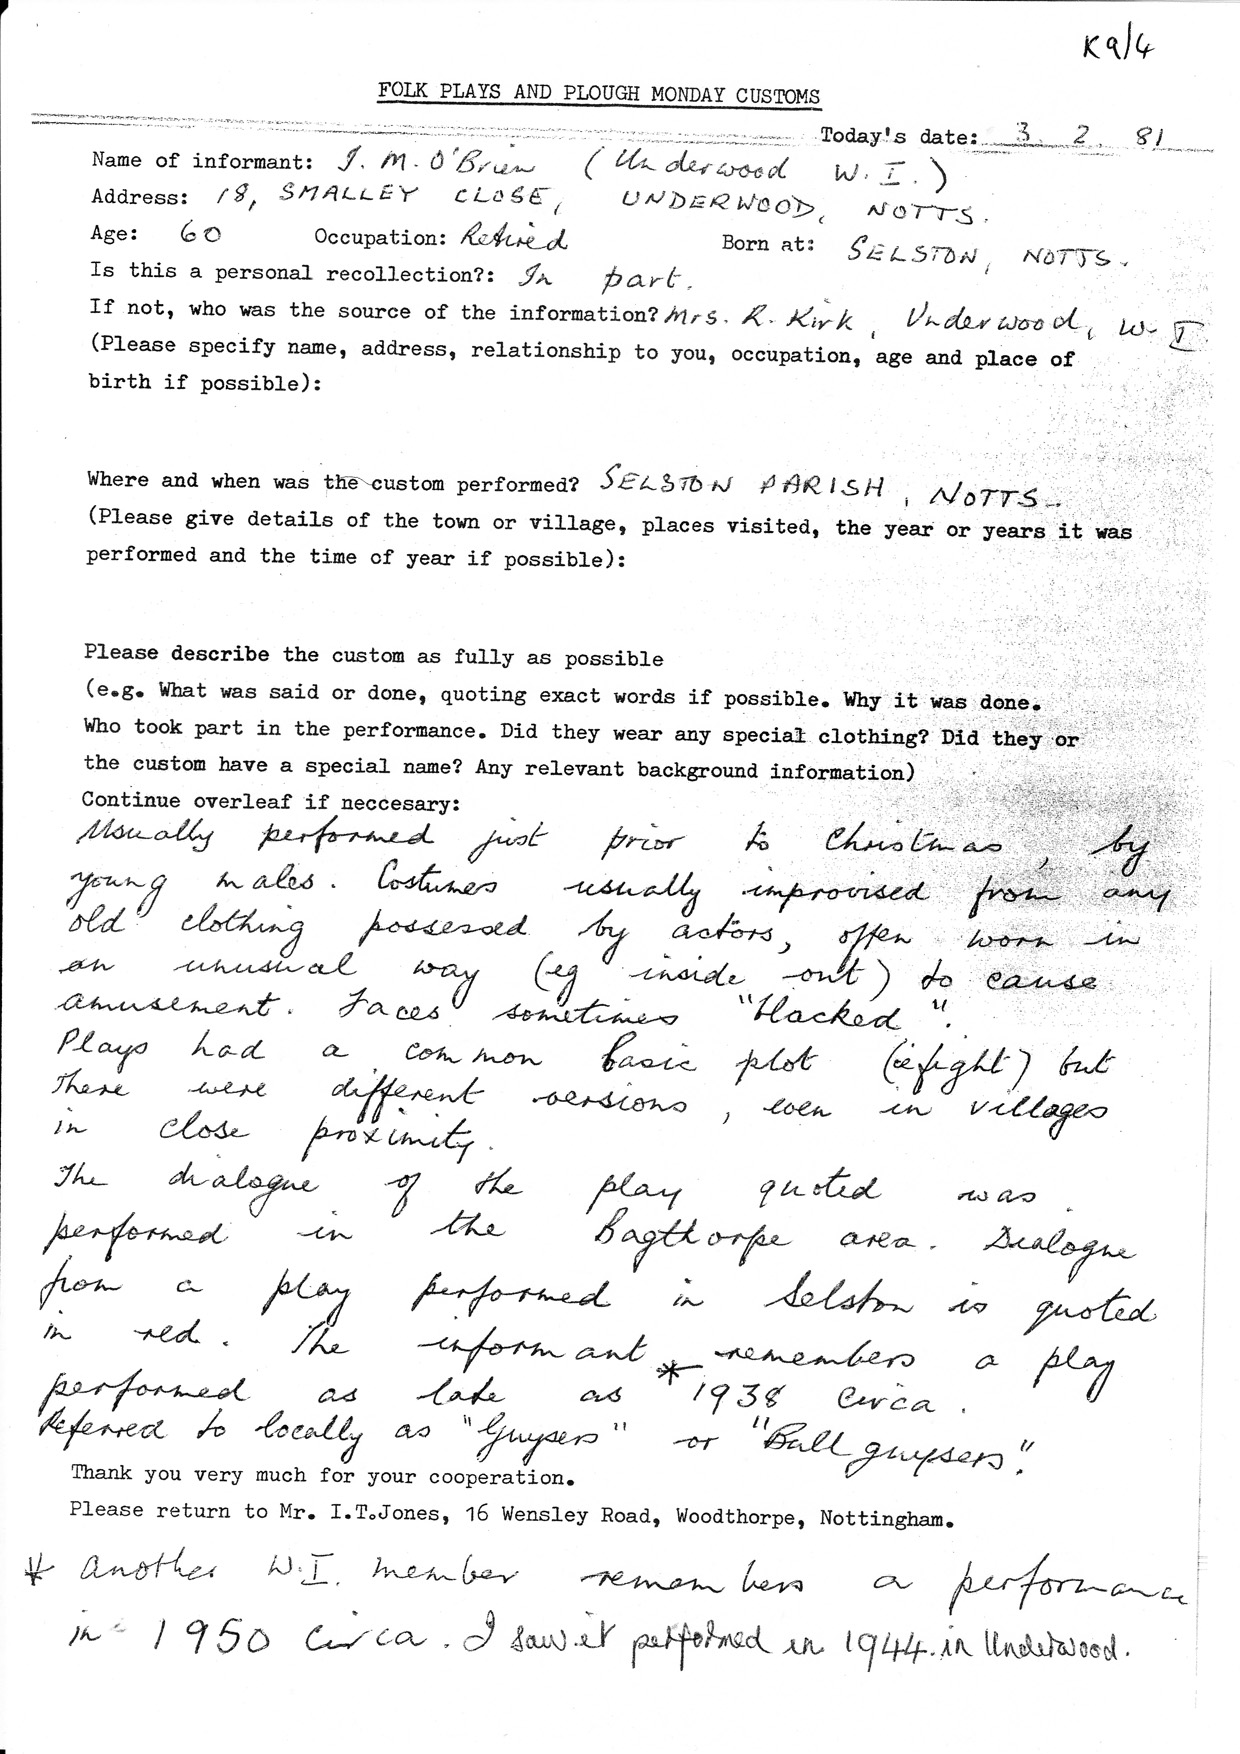 K9/4
FOLK PLAYS AND PLOUGH MONDAY CUSTOMS
Today's date: 3. 2. 81
Name of informant: J. M. O'Brien (Underwood W. I.)
Address: 18, SMALLEY CLOSE, UNDERWOOD, NOTTS.
Age: 60 Occupation: Retired Born at: SELSTON, NOTTS.
Is this a personal recollection?: In part.
If not, who was the source of the information? Mrs. R. Kirk, Underwood, W. I
(Please specify name, address, relationship to you, occupation, age and place of
birth if possible):
Where and when was the custom performed? SELSTON PARISH, NOTTS.
(Please give details of the town or village, places visited, the year or years it was
performed and the time of year if possible):
Please describe the custom as fully as possible
(e.g. What was said or done, quoting exact words if possible. Why it was done.
Who took part in the performance. Did they wear any special clothing? Did they or
the custom have a special name? Any relevant background information)
Continue overleaf if neccesary:
Usually performed just prior to Christmas, by
young males. Costumes usually improvised from any
old clothing possessed by actors, often worn in
an unusual way (eg inside out) to cause
amusement. Faces sometimes "blacked".
Plays had a common basic plot (ie fight) but
there were different versions, even in villages
in close proximity.
The dialogue of the play quoted was
performed in the Bagthorpe area. Dialogue
from a play performed in Selston is quoted
in red. The informant remembers a play
performed as late as * 1938 circa.
Referred to locally as "Guysers" or "Bull guysers".
Thank you very much for your cooperation.
Please return to Mr. I.T.Jones, 16 Wensley Road, Woodthorpe, Nottingham.
* another W.I. member remembers a performance
in 1950 circa. I saw it performed in 1944. in Underwood.